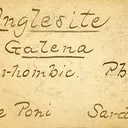 Anglesite
Galena
rhombic. Ph
e Poni Sard